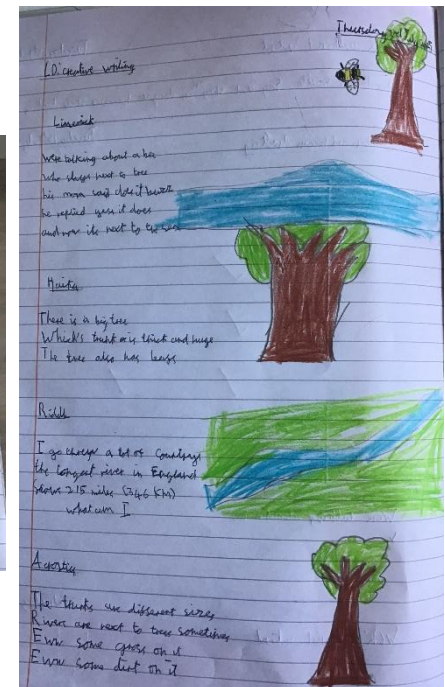 LO: creative writing
Limerick
were talking about a bee
who sleeps next to tree
his mom said does it
he replied yess it does
and now its next to the
Haiku
There is a big tree
Which's trunk is thick and huge
The tree also has leaves
Riddle
I go through a lot of countrys
the longest river in England
flows 215 miles (346 KM)
what am I
Acrostic
The trunks are different sizes
Rivers are next to trees sometimes
Eww some grass on it
Eww some dirt on it